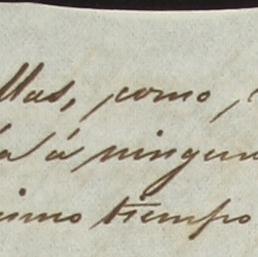 llas, como,
a á ningun
ismo tiempo